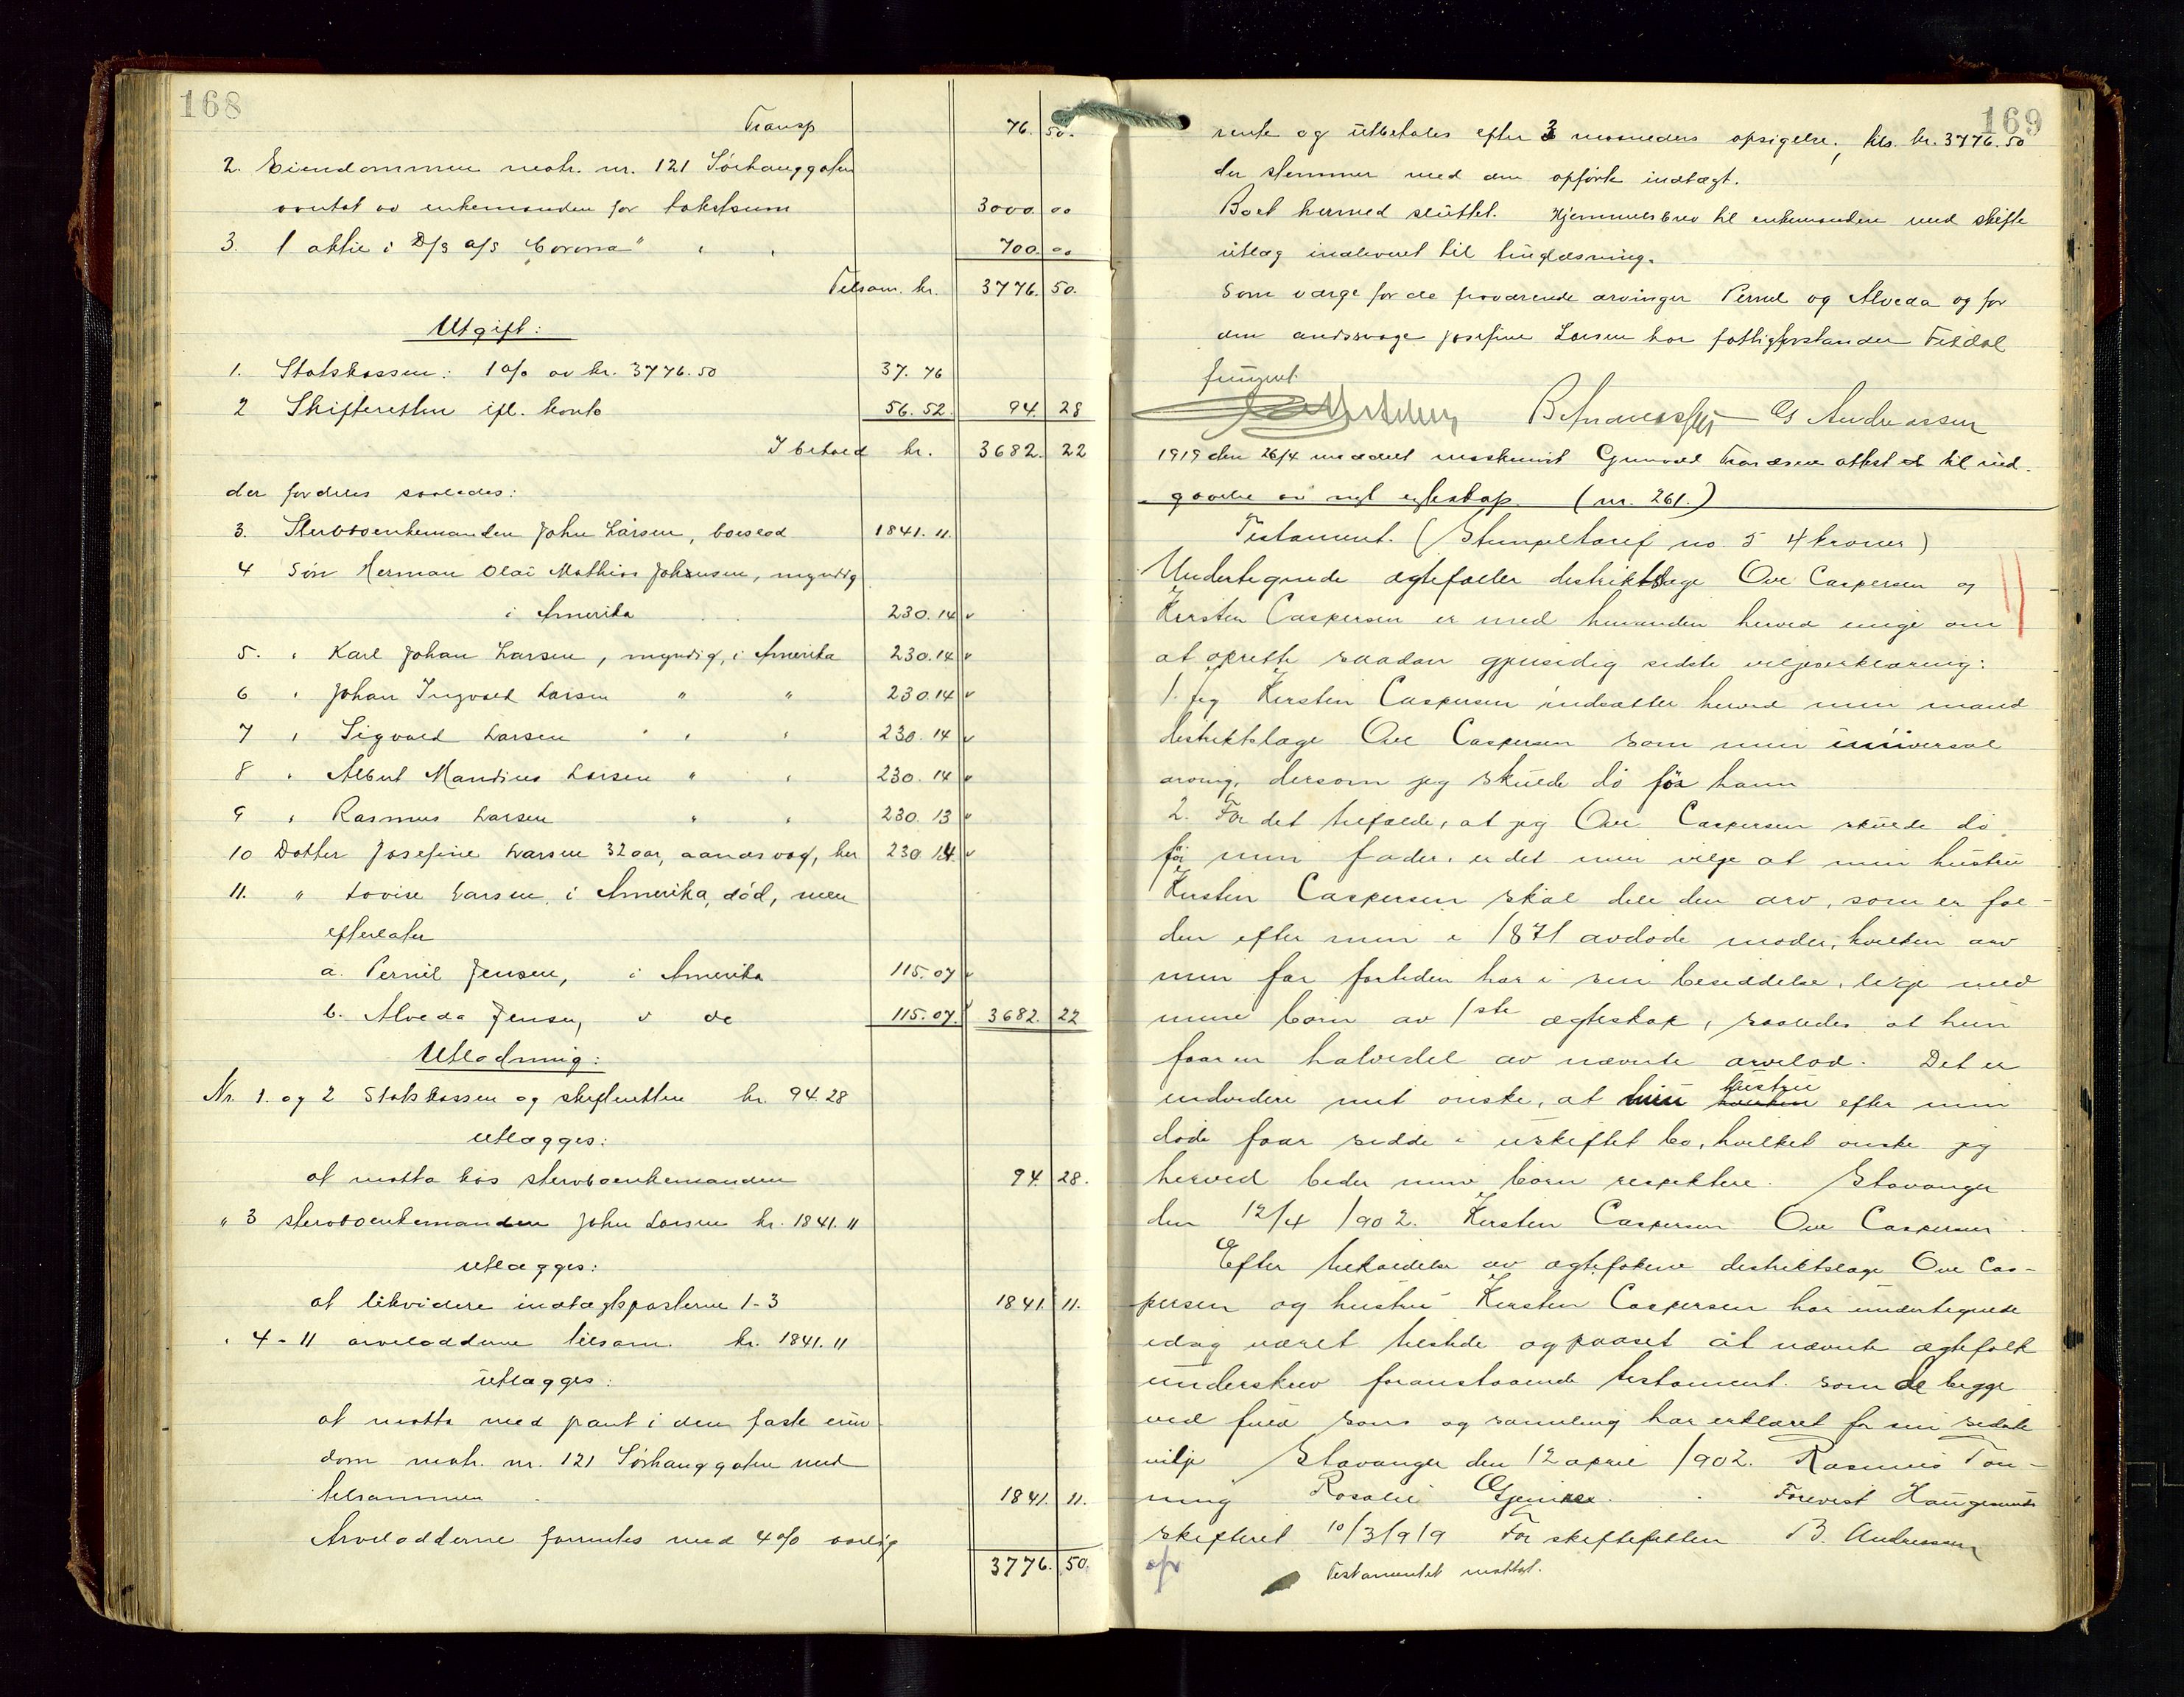 168
Transp 76. 50.
2. Eiendommen matr. nr. 121 Sørhauggaten
overtat av enkemanden for takstsum 3000. 00
3. 1 aktie i D/S a/s "Corona" " " 700. 00
Tilsam. kr. 3776. 50.
Utgift:
1. Statskassen: 1 % av kr. 3776.50 37.76
2 Skifteretten ifl. konto 56.52. 94. 28
I behold kr. 3682. 22
der fordeles saaledes:
3. Stervboenkemanden John Larsen, boeslod 1841.11
4 Søn Herman Olai Mathias Johnsen, myndig
i Amerika 230.14
5. " Karl Johan Larsen, myndig, i Amerika 230.14
6 " Johan Ingvald Larsen " " 230.14
7 " Sigvald Larsen " " 230.14
8 " Albert Mandius Larsen " " 230.14
9 " Rasmus Larsen " " 230.13
10 Datter Josefine Larsen 32 aar, aandsvag, her 230.14
11. " Lovise Larsen, i Amerika, død, men
efterlater
a. Pernil Jensen, i Amerika 115.07
b. Alveda Jensen, " do 115.07. 3682. 22
Utlodning:
Nr. 1. og 2 Statskassen og skifteretten kr. 94.28
utlægges:
at motta hos stervboenkemanden 94. 28.
" 3 stervboenkemanden John Larsen kr. 1841.11
utlægges:
at likvidere indtægtsposterne 1-3 1841. 11.
" 4-11 arveloddene tilsam. kr. 1841.11
utlægges:
at motta med pant i den faste eien
dom matr. nr. 121 Sørhauggaten med
tilsammen 1841. 11.
Arvelodderne forrentes med 4 % aarlig
3776. 50.
169
rente og utbetales efter 3 maaneders opsigelse, tils. kr. 3776.50
der stemmer med den opførte indtægt.
Boet hermed sluttet. Hjemmelsbrev til enkemanden med skifte
utlæg indleveret til tinglæsning.
Som værge for de fraværende arvinger Pernil og Alveda og for
den andssvage Josefine Larsen har fattigforstander
fungert.
G Andreassen
1919 den 26/4 meddelt maskinist attest til ind-
gaaelse av nyt egteskap. (nr. 261.)
Testament. (Stempeltarif no. 5 4 kroner)
Undertegnede ægtefæller distriktslæge Ove Caspersen og
Kirsten Caspersen er med hinanden herved enige om
at oprette saadan gjensidig sidste viljeserklæring:
1. Jeg Kirsten Caspersen indsætter herved min mand
distriktslæge Ove Caspersen som min universal
arving, dersom jeg skulde dø før ham
2. For det tilfælde, at jeg Ove Caspersen skulde dø
før min fader, er det min vilje at min hustru
Kirsten Caspersen skal dele den arv, som er fal-
den efter min i 1871 avdøde moder, hvilken arv
min far fortiden har i sin besiddelse, lige med
mine børn av 1ste ægteskap, saaledes at hun
faar en halvedel av nævnte arvelod. Det er
endvidere mit ønske, at min hustru efter min
død faar sidde i uskiftet bo, hvilket ønske jeg
herved beder mine børn respektere. Stavanger
den 12/4 1902. Kirsten Caspersen Ove Caspersen
Efter tilkaldelse av ægtefolkene distriktslæge Ove Cas-
persen og hustru Kirsten Caspersen har undertegnede
idag været tilstede og paaset at nævnte ægtefolk
underskrev foranstaaende testament som de begge
ved fuld sans og samling har erklæret for sin sidste
vilje Stavanger den 12 april 1902. Rasmus Tøn-
ning Rosalie Forevist Haugesunds
skifteret 10/3 1919 For skifteretten B. Andreassen
Testamentet mottat.